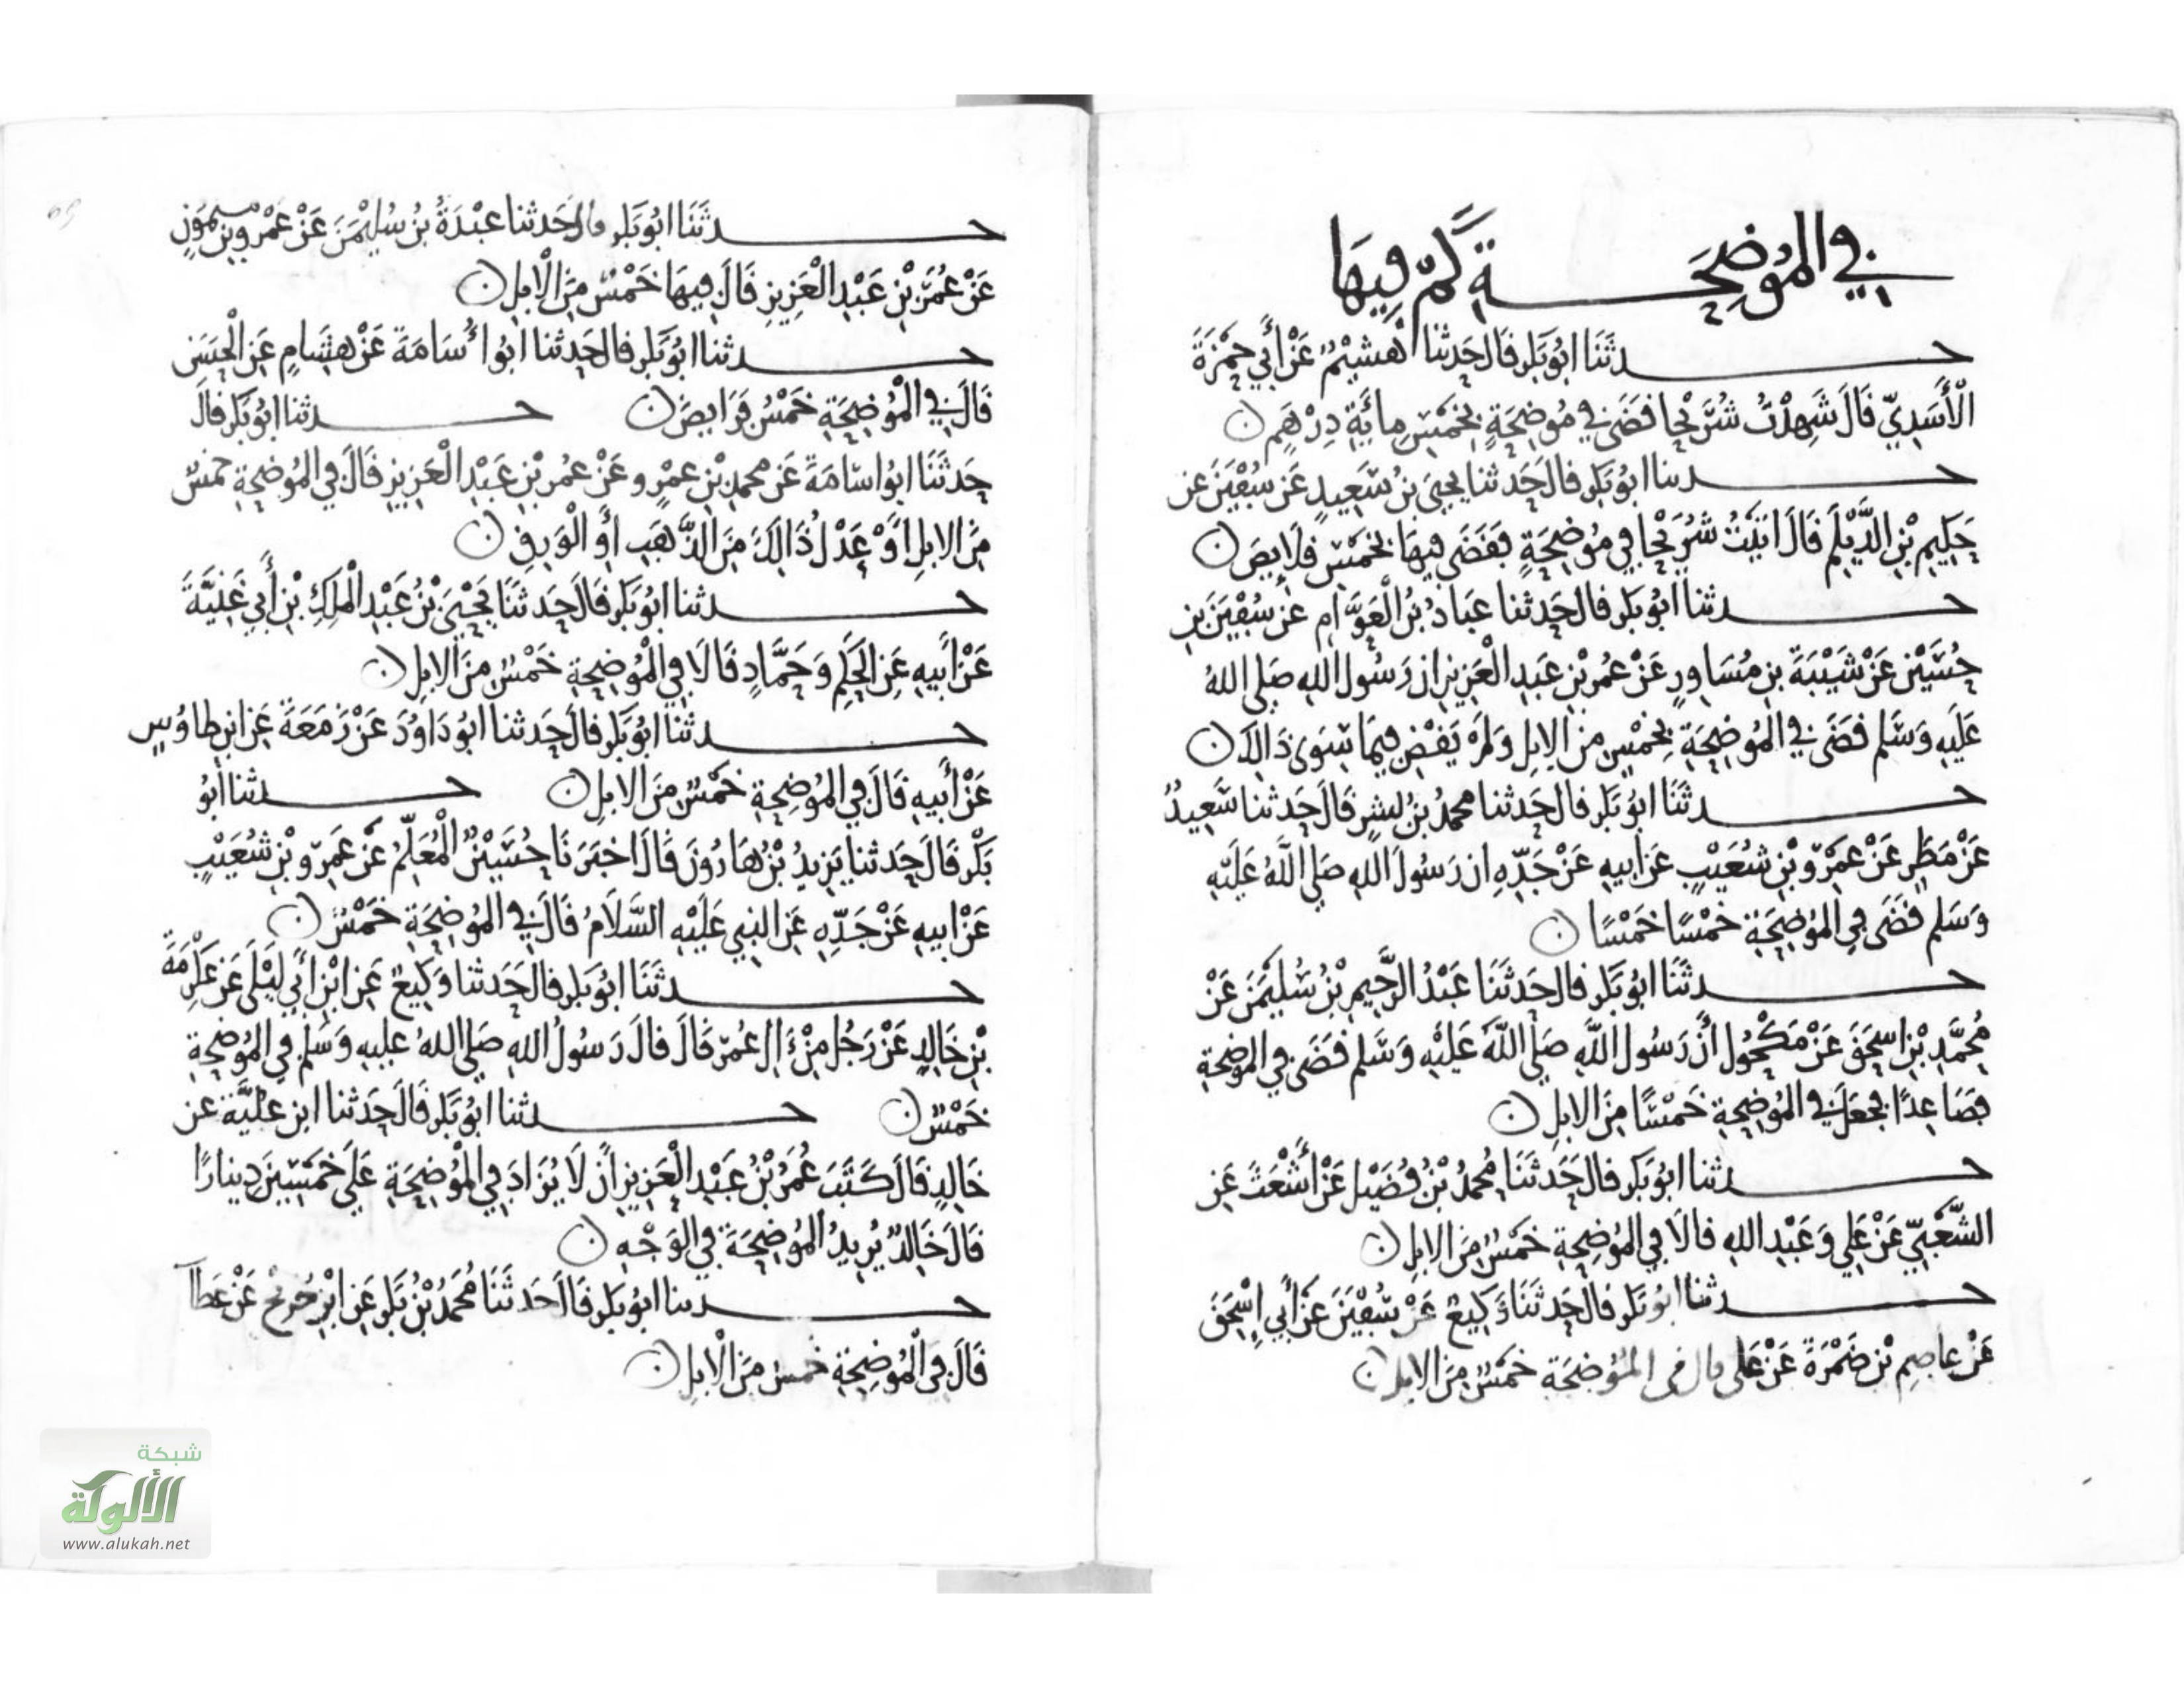 في الموضحة كم فيها
حدثنا ابو بكر قال حدثنا هشيم عن أبي حمزة
الأسدي قال شهدت شريحا قضى في موضحة بخمس مائة درهم
حدثنا ابو بكر قال حدثنا يحيى بن سعيد عن سفين عن
حكيم بن الديلم قال اتيت شريحا في موضحة فقضى فيها بخمس قلايص
حدثنا ابو بكر قال حدثنا عباد بن العوام عن سفين بن
حسين عن شيبة بن مساور عن عمر بن عبد العزيز ان رسول الله صلى الله
عليه وسلم قضى في الموضحة بخمس من الابل ولم يقض فيما سوى ذالك
حدثنا ابو بكر قال حدثنا محمد بن بشر قال حدثنا سعيد
عن مطر عن عمرو بن شعيب عن ابيه عن جده ان رسول الله صلي الله عليه
وسلم قضى في الموضحة خمسا خمسا
حدثنا ابو بكر قال حدثنا عبد الرحيم بن سليمن عن
محمد بن اسحق عن مكحول أن رسول الله صلي الله عليه وسلم قضى في الموضحة
فصاعدا فجعل في الموضحة خمسا من الابل
حدثنا ابو بكر قال حدثنا محمد بن فضيل عن أشعث عن
الشعبي عن علي وعبد الله قالا في الموضحة خمس من الابل
حدثنا ابو بكر قال حدثنا وكيع عن سفين عن أبي إسحق
عن عاصم بن ضمرة عن على قال في الموضحة خمس من الابل
حدثنا ابو بكر قال حدثنا عبدة بن سليمن عن عمرو بن ميمون
عن عمر بن عبد العزيز قال فيها خمس من الابل
حدثنا ابو بكر قال حدثنا ابو أسامة عن هشام عن الحسن
قال في الموضحة خمس فرايض حدثنا ابو بكر قال
حدثنا ابو اسامة عن محمد بن عمرو عن عمر بن عبد العزيز قال في الموضحة خمس
من الابل او عدل ذالك من الذهب أو الورق
حدثنا ابو بكر قال حدثنا يحيى بن عبد الملك بن أبي غنية
عن أبيه عن الحكم وحماد قالا في الموضحة خمس من الابل
حدثنا ابو بكر قال حدثنا ابو داود عن زمعة عن ابن طاوس
عن أبيه قال في الموضحة خمس من الابل حدثنا ابو
بكر قال حدثنا يزيد بن هارون قال اخبرنا حسين المعلم عن عمرو بن شعيب
عن ابيه عن جده عن النبي عليه السلام قال في الموضحة خمس
حدثنا ابو بكر قال حدثنا وكيع عن ابن أبي ليلى عن عكرمة
بن خالد عن رجل من ءال عمر قال قال رسول الله صلي الله عليه وسلم في الموضحة
خمس حدثنا ابو بكر قال حدثنا ابن علية عن
خالد قال كتب عمر بن عبد العزيز أن لا يزاد في الموضحة على خمسين دينارا
قال خالد يريد الموضحة في الوجه
حدثنا ابو بكر قال حدثنا محمد بن بكر عن ابن جريج عن عطا
قال في الموضحة خمس من الابل
شبكة
الألوكة
www.alukah.net